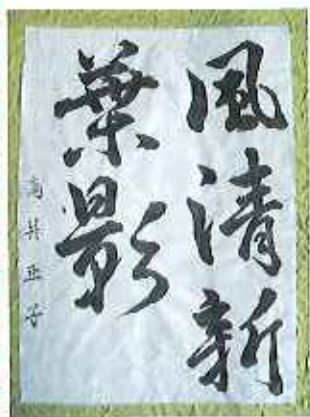 風清新
葉影
高井正子